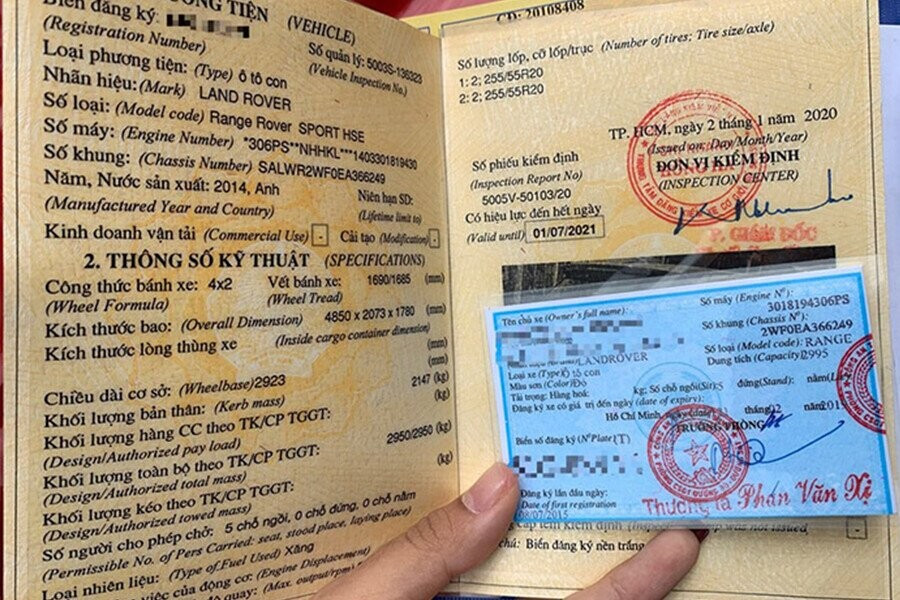 Biển đăng ký:
(Registration Number)
(VEHICLE)
Số quản lý: 5003S-136323
(Vehicle Inspection No.)
Loại phương tiện: (Type) ô tô con
Nhãn hiệu: (Mark) LAND ROVER
Số loại: (Model code) Range Rover SPORT HSE
Số máy: (Engine Number) *306PS**NHHKL***1403301819430
Số khung: (Chassis Number) SALWR2WF0EA366249
Năm, Nước sản xuất: 2014, Anh
(Manufactured Year and Country)
Niên hạn SD:
(Lifetime limit to)
Kinh doanh vận tải (Commercial Use) - Cải tạo (Modification) -
2. THÔNG SỐ KỸ THUẬT (SPECIFICATIONS)
Công thức bánh xe: 4x2 Vết bánh xe: 1690/1685 (mm)
(Wheel Formula) (Wheel Tread)
Kích thước bao: (Overall Dimension) 4850 x 2073 x 1780 (mm)
Kích thước lòng thùng xe (Inside cargo container dimension)
(mm)
(mm)
Chiều dài cơ sở: (Wheelbase) 2923
Khối lượng bản thân: (Kerb mass) 2147 (kg)
Khối lượng hàng CC theo TK/CP TGGT:
(Design/Authorized pay load)
Khối lượng toàn bộ theo TK/CP TGGT: 2950/2950 (kg)
(Design/Authorized total mass)
Khối lượng kéo theo TK/CP TGGT: (kg)
(Design/Authorized towed mass)
Số người cho phép chở: 5 chỗ ngồi, 0 chỗ đứng, 0 chỗ nằm
(Permissible No. of Pers Carried: seat, stood place, laying place)
Loại nhiên liệu: (Type of Fuel Used) Xăng
(Engine Displacement)
(Max. output/rpm)
Số lượng lốp, cỡ lốp/trục (Number of tires; Tire size/axle)
1: 2; 255/55R20
2: 2; 255/55R20
TP. HCM, ngày 2 tháng 1 năm 2020
(Issued on: Day/Month/Year)
Số phiếu kiểm định
(Inspection Report No)
5005V-50103/20
ĐƠN VỊ KIỂM ĐỊNH
(INSPECTION CENTER)
Có hiệu lực đến hết ngày
(Valid until) 01/07/2021
P. GIÁM ĐỐC
Tên chủ xe (Owner's full name):
Số máy (Engine Nº):
3018194306PS
Số khung (Chassis Nº):
2WF0EA366249
LANDROVER
Số loại (Model code): RANGE
Loại xe (Type) ô tô con
Dung tích (Capacity) 2995
Màu sơn (Color) Đỏ
Tải trọng: Hàng hoá: kg; Số chỗ ngồi (Sit): 5 đứng (Stand): nằm
Đăng ký xe có giá trị đến ngày (date of expiry):
Hồ Chí Minh, tháng 02
TRƯỞNG PHÒNG
Biển số đăng ký (Nº Plate)
Đăng ký lần đầu ngày:
Date of first registration
08/07/2015
Thượng tá Phan Văn Xị
was not issued
Biển đăng ký nền trắng